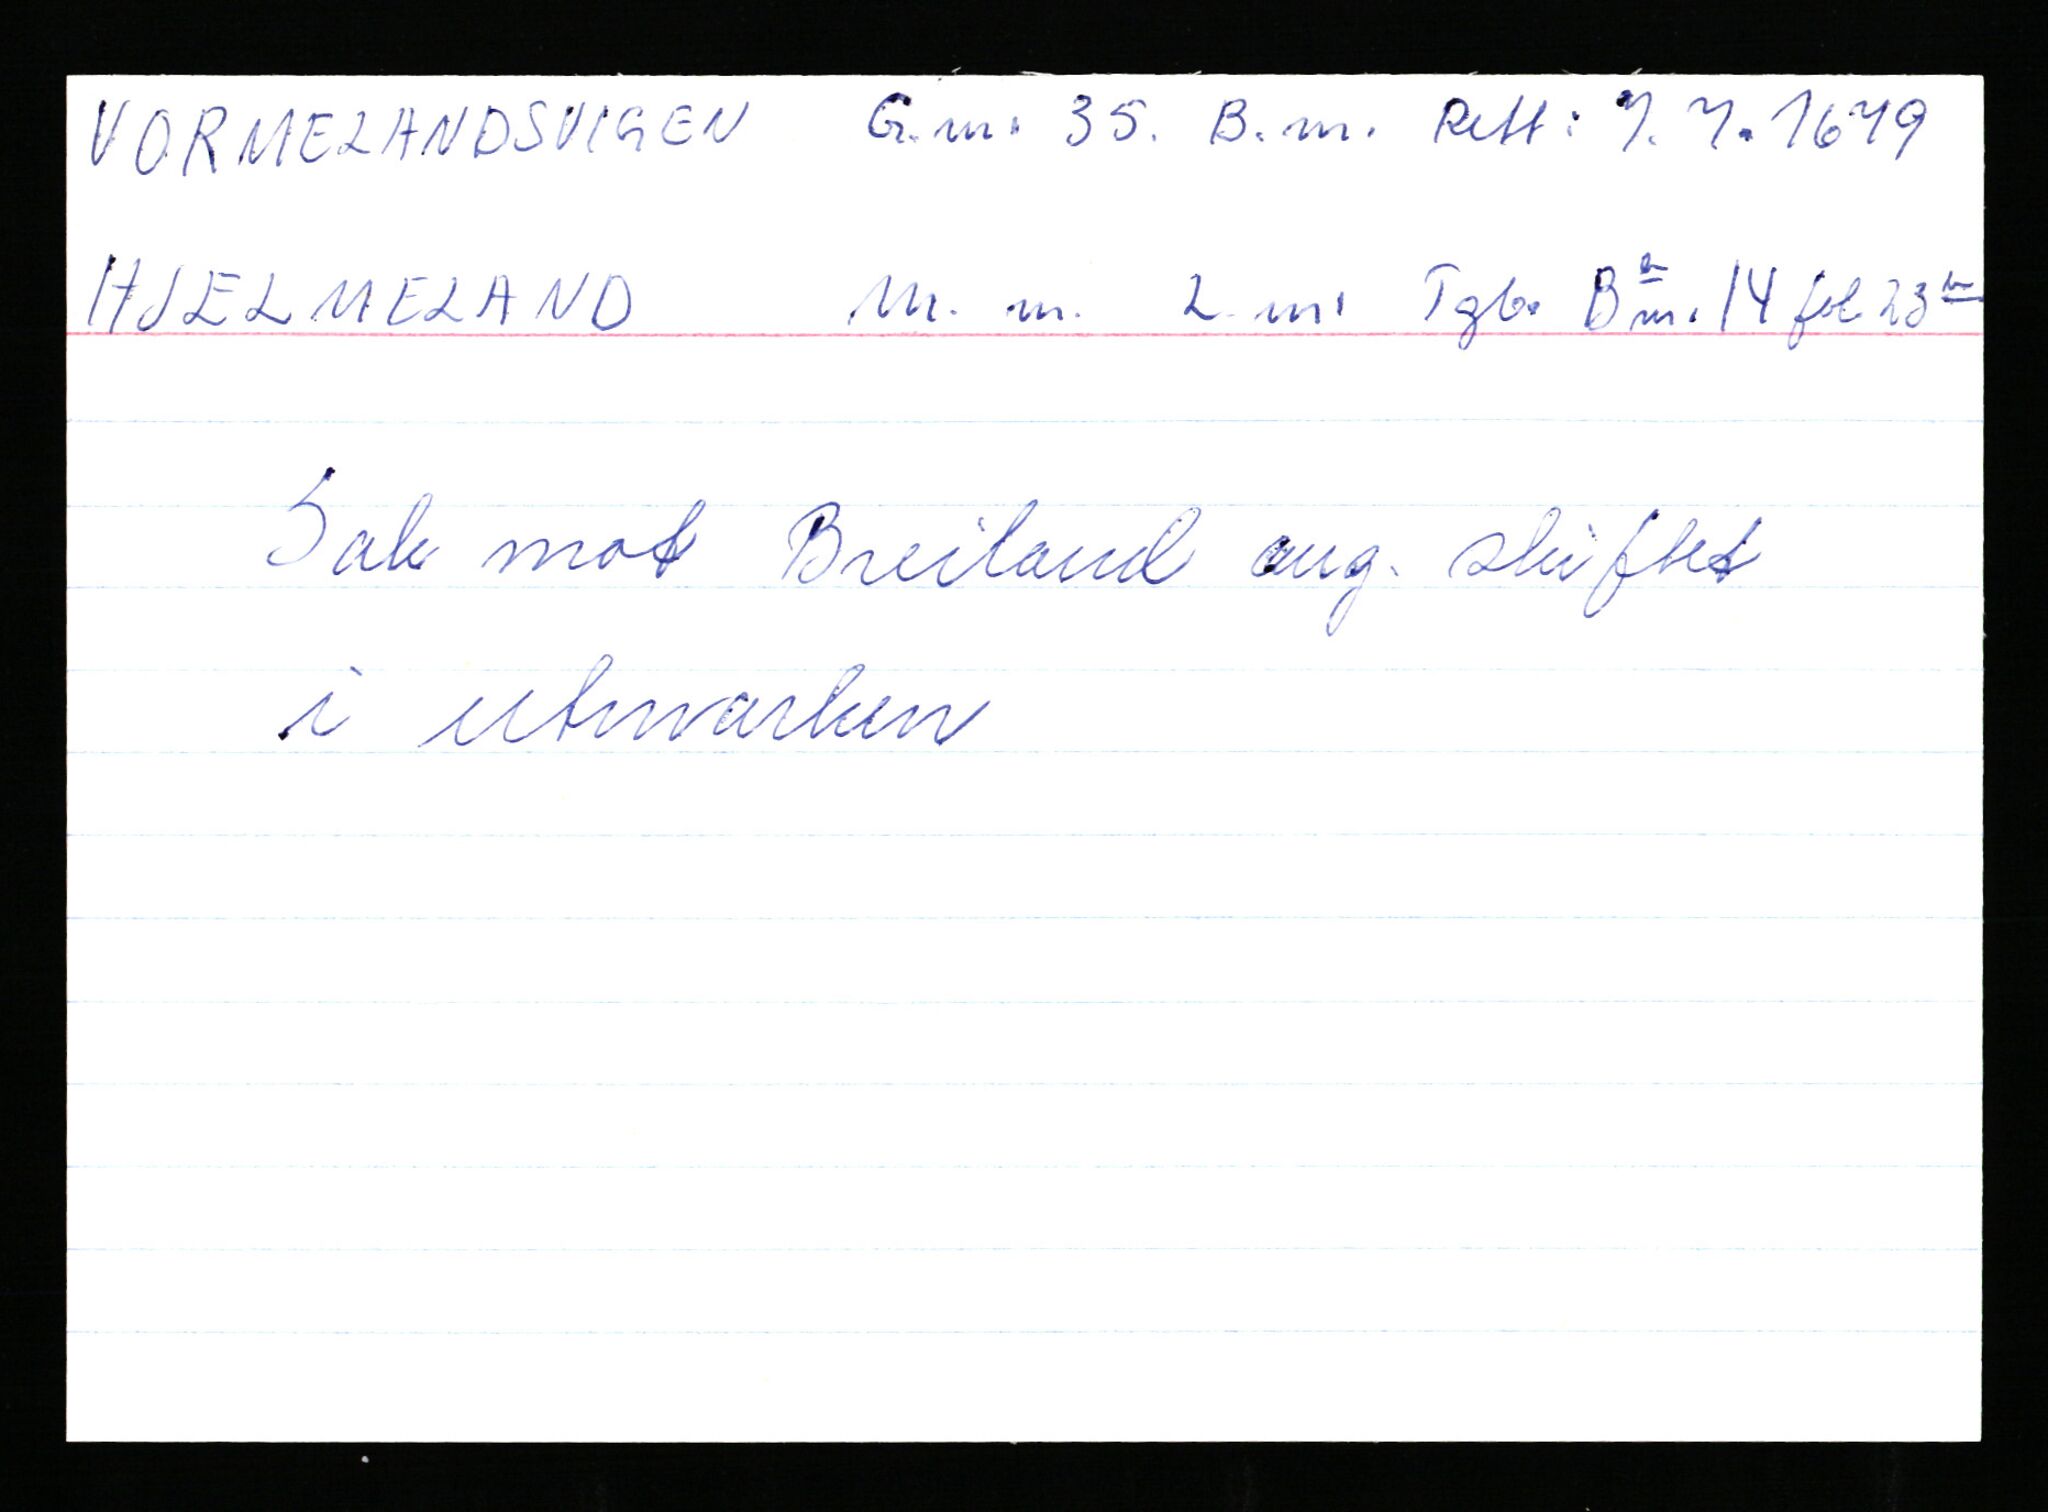 VORMELANDSVIGEN G.nr. 35. B.nr. Rett: 7. 7. 1679
HJELMELAND M. nr. L. nr. Tgb. B a nr. 14 fol 23 b
Sak mot Breiland ang. skiftet
i utmarken